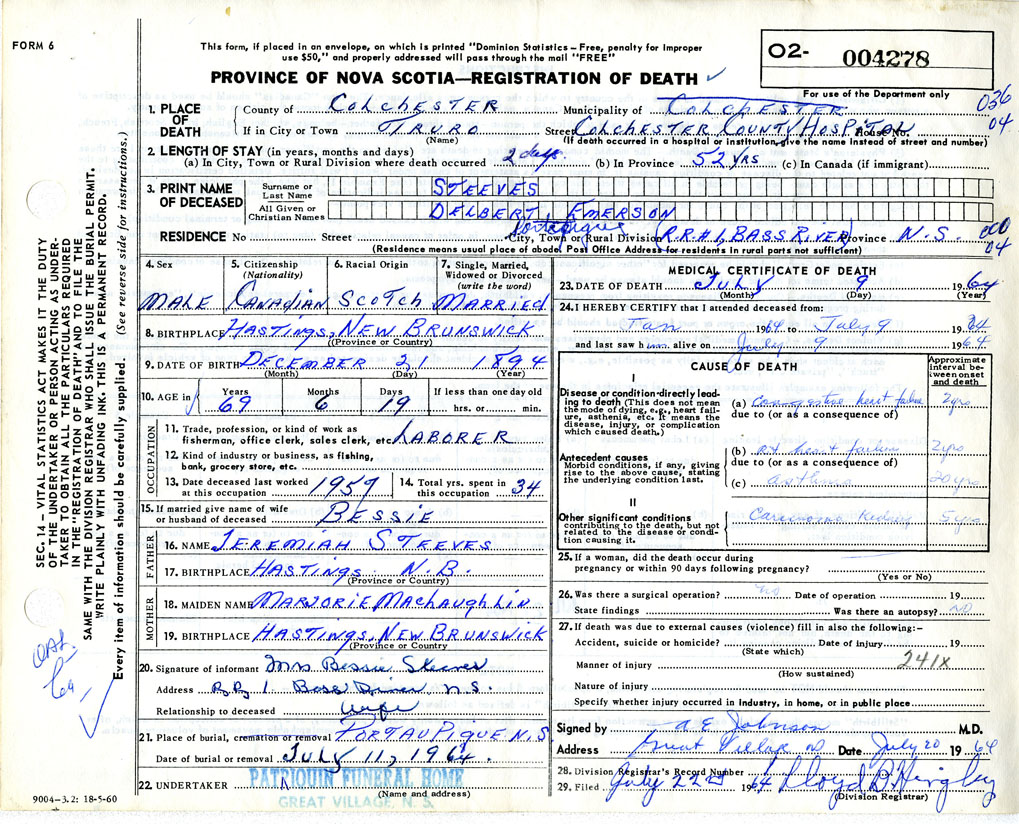 FORM 6
This form, if placed in an envelope, on which is printed "Dominion Statistics – Free, penalty for improper
use $50," and properly addressed will pass through the mail "FREE"
PROVINCE OF NOVA SCOTIA—REGISTRATION OF DEATH ✓
O2- 004278
For use of the Department only
036
04
1. PLACE OF DEATH
County of COLCHESTER Municipality of COLCHESTER
If in City or Town TRURO Street COLCHESTER COUNTY HOSPITAL House No.
(Name) (If death occurred in a hospital or institution, give the name instead of street and number)
2. LENGTH OF STAY (in years, months and days)
(a) In City, Town or Rural Division where death occurred 2 days. (b) In Province 52 YRS (c) In Canada (if immigrant)
3. PRINT NAME OF DECEASED
Surname or Last Name STEEVES
All Given or Christian Names DELBERT EMERSON
Portapique
RESIDENCE No Street City, Town or Rural Division (R.R#1, BASS RIVER) Province N.S. 000
04
(Residence means usual place of abode. Post Office Address for residents in rural parts not sufficient)
4. Sex 5. Citizenship (Nationality) 6. Racial Origin 7. Single, Married, Widowed or Divorced (write the word)
MALE CANADIAN SCOTCH MARRIED
8. BIRTHPLACE HASTINGS, NEW BRUNSWICK
(Province or Country)
9. DATE OF BIRTH DECEMBER 21 1894
(Month) (Day) (Year)
10. AGE in Years Months Days If less than one day old
69 6 19 hrs. or min.
OCCUPATION
11. Trade, profession, or kind of work as
fisherman, office clerk, sales clerk, etc. LABORER
12. Kind of industry or business, as fishing,
bank, grocery store, etc.
13. Date deceased last worked at this occupation 1959 14. Total yrs. spent in this occupation 34
15. If married give name of wife
or husband of deceased BESSIE
FATHER
16. NAME JEREMIAH STEEVES
17. BIRTHPLACE HASTINGS N.B.
(Province or Country)
MOTHER
18. MAIDEN NAME MARJORIE MACHAUGHLIN
19. BIRTHPLACE HASTINGS, NEW BRUNSWICK
(Province or Country
20. Signature of informant Mrs Bessie Steeves
Address R R 1 Bass River N.S.
Relationship to deceased wife
21. Place of burial, cremation or removal PORTAUPIQUE N.S
Date of burial or removal JULY 11, 1964.
22. UNDERTAKER PATRIQUIN FUNERAL HOME
GREAT VILLAGE, N. S.
(Name and address)
9004-3.2: 18-5-60
MEDICAL CERTIFICATE OF DEATH
23. DATE OF DEATH JULY 9 1964
(Month) (Day) (Year)
24. I HEREBY CERTIFY that I attended deceased from:
Jan 1964 to July 9 1964
and last saw him alive on July 9 1964
CAUSE OF DEATH
Approximate interval between onset and death
I
Disease or condition directly leading to death (This does not mean the mode of dying, e.g., heart failure, asthenia, etc. It means the disease, injury, or complication which caused death.)
(a) Congestive heart failure 2 yrs
due to (or as a consequence of)
Antecedent causes
Morbid conditions, if any, giving rise to the above cause, stating the underlying condition last.
(b) Rt heart failure 2 yrs
due to (or as a consequence of)
(c) asthma 20 yrs
II
Other significant conditions
contributing to the death, but not related to the disease or condition causing it.
Carcinoma Kidney 5 yrs
25. If a woman, did the death occur during
pregnancy or within 90 days following pregnancy?
(Yes or No)
26. Was there a surgical operation? no Date of operation 19
State findings Was there an autopsy? NO
27. If death was due to external causes (violence) fill in also the following:–
Accident, suicide or homicide? Date of injury 19
(State which)
241X
Manner of injury
(How sustained)
Nature of injury
Specify whether injury occurred in industry, in home, or in public place
Signed by A E Johnson M.D.
Address Great Village NS Date July 20 1964
28. Division Registrar's Record Number
29. Filed July 22 1964 Lloyd B
(Division Registrar)
SEC. 14 – VITAL STATISTICS ACT MAKES IT THE DUTY
OF THE UNDERTAKER OR PERSON ACTING AS UNDER-
TAKER TO OBTAIN ALL THE PARTICULARS REQUIRED
IN THE "REGISTRATION OF DEATH" AND TO FILE THE
SAME WITH THE DIVISION REGISTRAR WHO SHALL ISSUE THE BURIAL PERMIT.
WRITE PLAINLY WITH UNFADING INK. THIS IS A PERMANENT RECORD.
Every item of information should be carefully supplied. (See reverse side for instructions.)